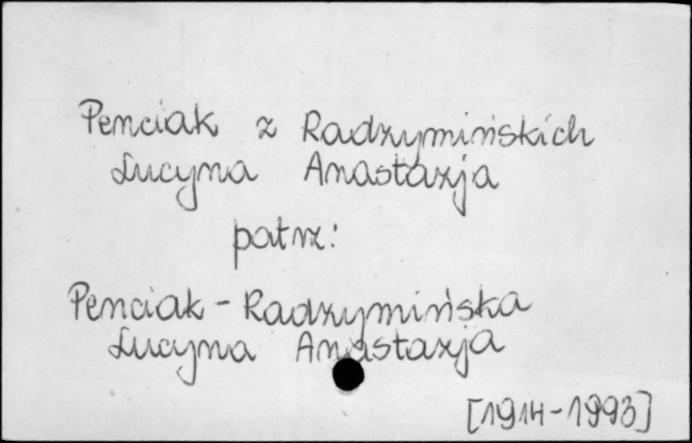 Penciak z Radzymińskich
Lucyna Anastazja
patrz:
Penciak-Radzymińska
Lucyna Anastazja
[1914-1993]